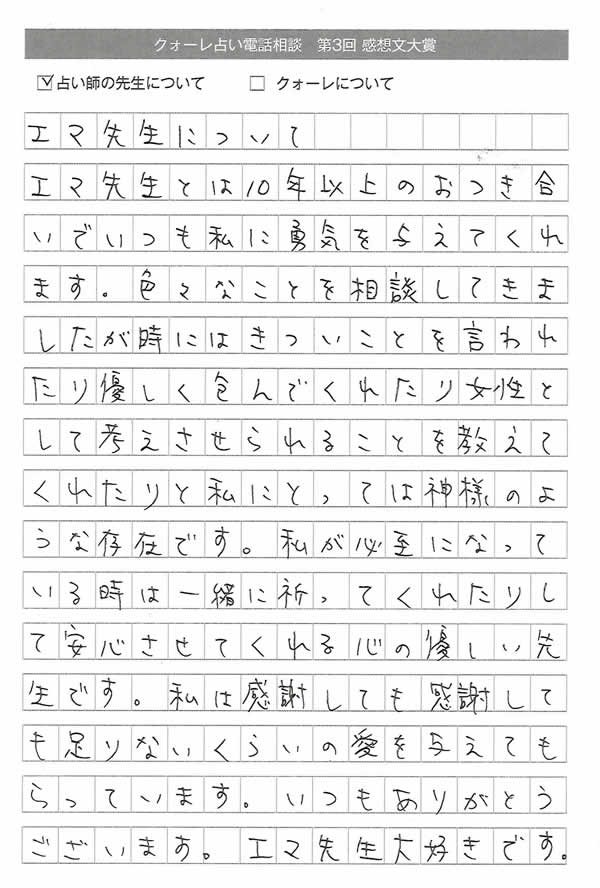 クォーレ占い電話相談　第3回 感想文大賞
☑占い師の先生について　☐ クォーレについて
エマ先生について
エマ先生とは10年以上のおつき合
いでいつも私に勇気を与えてくれ
ます。色々なことを相談してきま
したが時にはきついことを言われ
たり優しく包んでくれたり女性と
して考えさせられることを教えて
くれたりと私にとっては神様のよ
うな存在です。私が必至になって
いる時は一緒に祈ってくれたりし
て安心させてくれる心の優しい先
生です。私は感謝しても感謝して
も足りないくらいの愛を与えても
らっています。いつもありがとう
ございます。エマ先生大好きです。